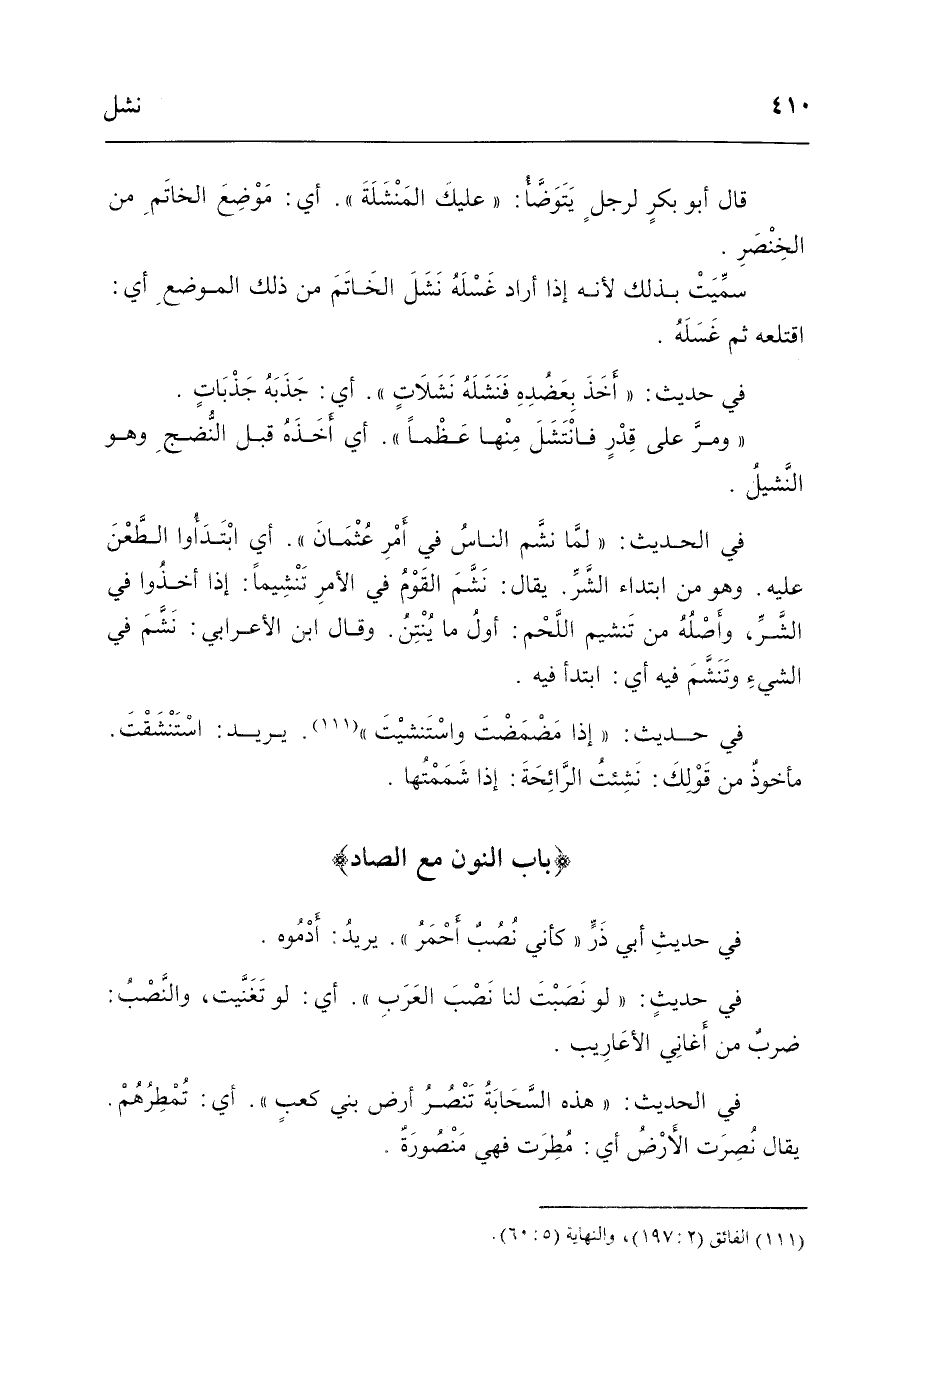 ٤١٠ نشل
قال أبو بكرٍ لرجلٍ يَتَوَضَّأُ: « عليكَ المَنْشَلَةَ ». أي: مَوْضِعَ الخاتَمِ من
الخِنْصَرِ .
سمِّيَتْ بـذلك لأنـه إذا أراد غَسْلَهُ نَشَلَ الخَـاتَمَ من ذلك المـوضعِ أي:
اقتلعه ثم غَسَلَهُ .
في حديث: « أَخَذَ بِعَضُدِهِ فَنَشَلَهُ نَشَلَاتٍ ». أي: جَذَبَهُ جَذْبَاتٍ .
« ومـرَّ على قِدْرٍ فـانْتَشَلَ مِنْهـا عَـظْمـاً ». أي أَخَذَهُ قبـل النُّضـجِ وهـو
النَّشيلُ .
في الحـديث: « لمَّا نشَّم النـاسُ في أَمْرِ عُثْمَـانَ ». أي ابْتَـدَأُوا الـطَّعْنَ
عليه. وهو من ابتداء الشَّرِّ. يقال: نَشَّمَ القَوْمُ في الأمرِ تَنْشِيماً: إذا أخـذُوا في
الشَّـرِّ، وأَصْلُهُ من تَنشيم اللَّحْمِ: أولُ ما يُنْتِنُ. وقـال ابن الأعـرابي: نَشَّمَ في
الشيءِ وتَنَشَّمَ فيه أي: ابتدأ فيه .
في حـديث: « إذا مَضْمَضْتَ واسْتَنشيْتَ »(١١١). يـريـد: اسْتَنْشَقْتَ.
مأخوذٌ من قَوْلِكَ: نَشِئتُ الرَّائِحَةَ: إذا شَمَمْتُها .
﴿باب النون مع الصاد﴾
في حديثِ أبي ذَرٍّ « كأني نُصُبٌ أَحْمَرُ ». يريدُ: أَدْمُوه .
في حديثٍ: « لو نَصَبْتَ لنا نَصْبَ العَرَبِ ». أي: لو تَغَنَّيت، والنَّصْبُ:
ضربٌ من أَغانِي الأعَارِيب .
في الحديث: « هذه السَّحَابَةُ تَنْصُـرُ أرضَ بني كعبٍ ». أي: تُمْطِرُهُمْ.
يقال نُصِرَت الأَرْضُ أي: مُطِرَت فهي مَنْصُورَةٌ .
(١١١) الفائق (٢: ١٩٧)، والنهاية (٥: ٦٠).